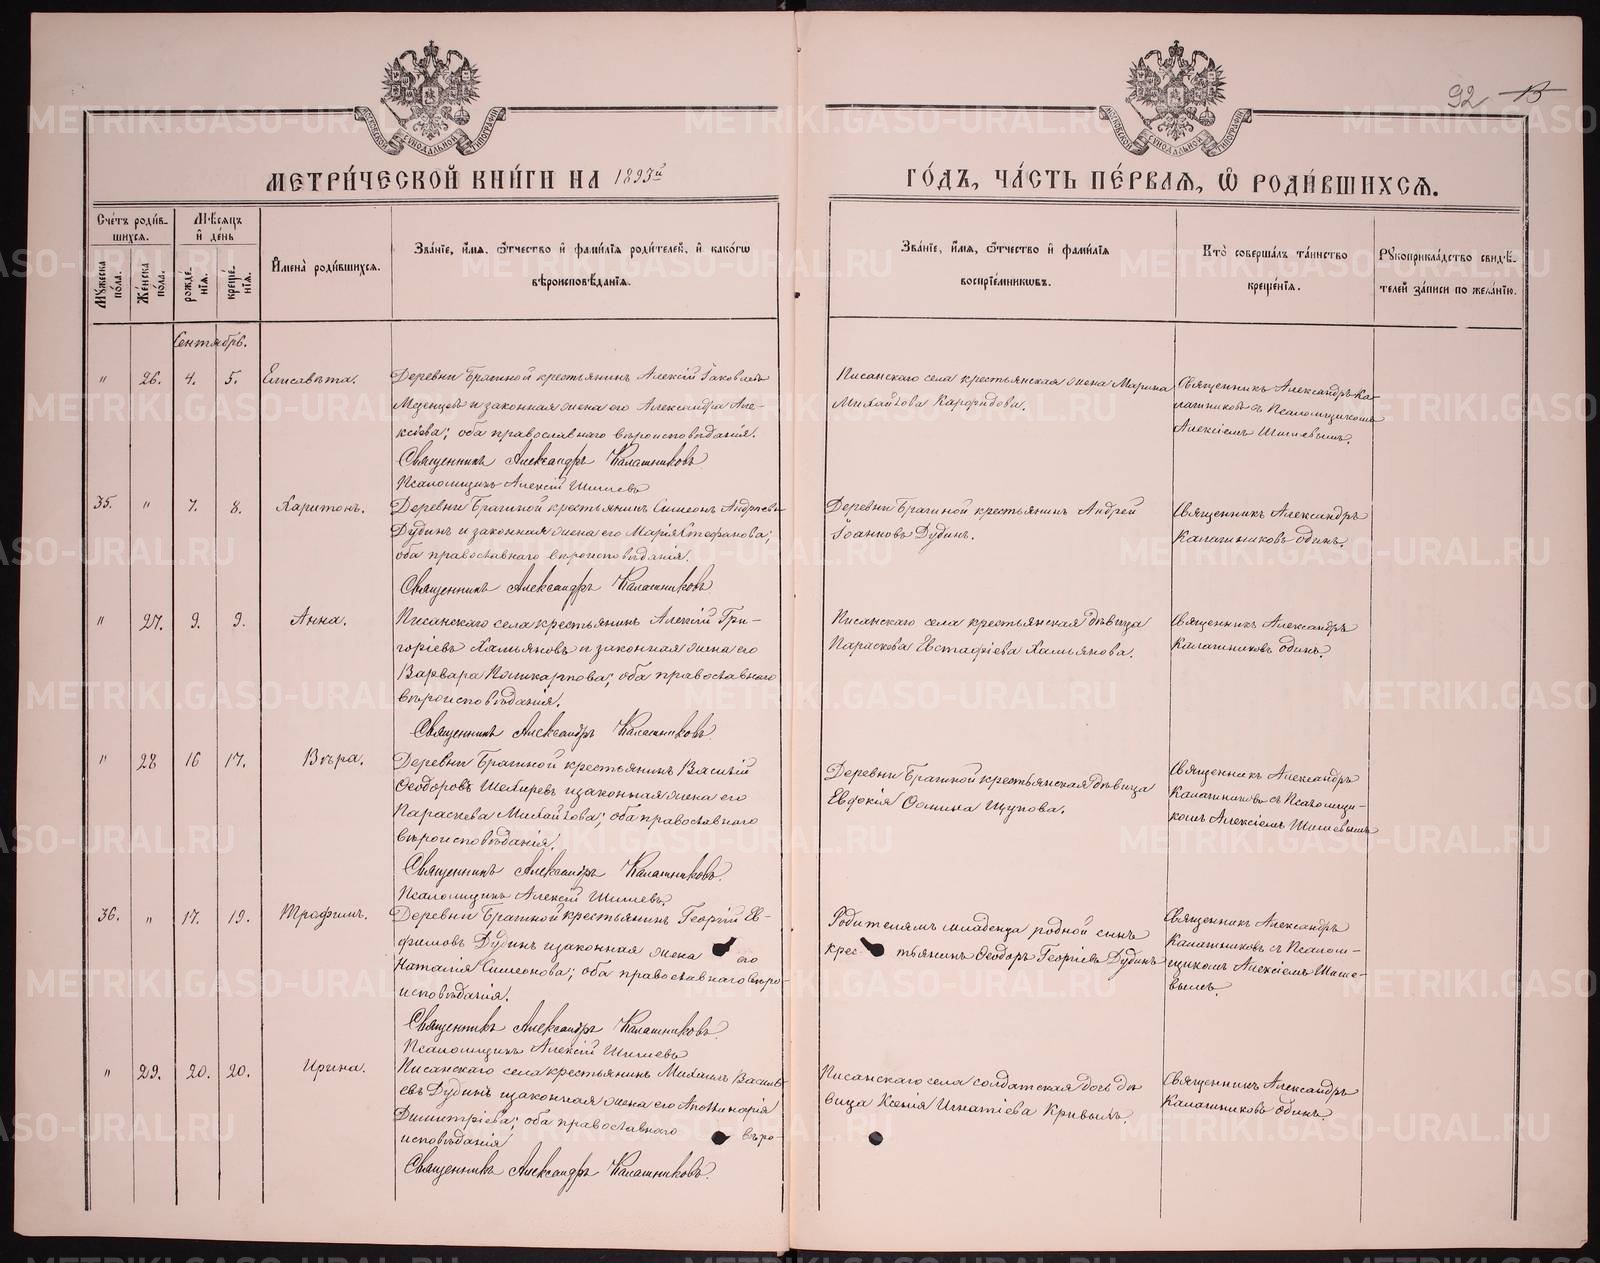 92 13
МОСКОВСКОЙ СѴНОДАЛЬНОЙ ТИПОГРАФІИ
МОСКОВСКОЙ СѴНОДАЛЬНОЙ ТИПОГРАФІИ
МЕТРИ́ЧЕСКОЙ КНИ́ГИ НА 1895й
ГО́ДЪ, ЧА́СТЬ ПЕ́РВАѦ, Ѡ РОДИ́ВШИХСѦ.
Сче́тъ роди́в-
шихсѧ.
Мꙋ́жеска по́ла.
Же́нска по́ла.
Мѣ́сѧцъ
и де́нь
рожде́нїѧ.
креще́нїѧ.
И҆мена̀ роди́вшихсѧ.
Зва́нїе, и҆́мѧ, ѻ҆́тчество и҆ фами́лїѧ роди́телей, и҆ како́гѡ
вѣроисповѣ́данїѧ.
Зва́нїе, и҆́мѧ, ѻ҆́тчество и҆ фами́лїѧ
воспрїе́мникѡвъ.
Кто̀ соверша́лъ та́инство
креще́нїѧ.
Рꙋкоприкла́дство свидѣ́-
телей за́писи по жела́нїю.
Сентябрь.
" 26. 4. 5. Елисавета.
Деревни Брагиной крестьянинъ Алексій Іаковлевъ
и законная жена его Александра Але-
ксѣева; оба православнаго вѣроисповѣданія.
Священникъ Александръ Калашниковъ
Псаломщикъ Алексій Шишевъ
Писанскаго села крестьянская жена Марина
Михайлова
Священникъ Александръ Ка-
лашниковъ съ Псаломщикомъ
Алексіемъ Шишевымъ.
35. " 7. 8. Харитонъ.
Деревни Брагиной крестьянинъ Симеонъ Андреевъ
Дудинъ и законная жена его Марія Стефанова;
оба православнаго вѣроисповѣданія.
Священникъ Александръ Калашниковъ
Деревни Брагиной крестьянинъ Андрей
Іоанновъ Дудинъ.
Священникъ Александръ
Калашниковъ одинъ.
" 27. 9. 9. Анна.
Писанскаго села крестьянинъ Алексій Гри-
горіевъ Хамьяновъ и законная жена его
Варвара Поликарпова; оба православнаго
вѣроисповѣданія.
Священникъ Александръ Калашниковъ
Писанскаго села крестьянская дѣвица
Параскова Евстафіева Хамьянова.
Священникъ Александръ
Калашниковъ одинъ.
" 28 16 17. Вѣра.
Деревни Брагиной крестьянинъ Василій
Ѳеодоровъ и законная жена его
Параскева Михайлова; оба православнаго
вѣроисповѣданія.
Священникъ Александръ Калашниковъ.
Псаломщикъ Алексій Шишевъ.
Деревни Брагиной крестьянская дѣвица
Евдокія Фомина Щупова.
Священникъ Александръ
Калашниковъ съ Псаломщи-
комъ Алексіемъ Шишевымъ
36. " 17. 19. Трофимъ.
Деревни Брагиной крестьянинъ Георгій Ев-
фимовъ Дудинъ и законная жена его
Наталія Симеонова; оба православнаго вѣро-
исповѣданія.
Священникъ Александръ Калашниковъ.
Псаломщикъ Алексій Шишевъ
Родителямъ младенца родной сынъ
крестьянинъ Ѳеодоръ Георгіевъ Дудинъ
Священникъ Александръ
Калашниковъ съ Псалом-
щикомъ Алексіемъ Шише-
вымъ.
" 29. 20. 20. Ирина.
Писанскаго села крестьянинъ Михаилъ Василь-
евъ Дудинъ и законная жена его Аполлинарія
Димитріева; оба православнаго вѣро-
исповѣданія
Священникъ Александръ Калашниковъ.
Писанскаго села солдатская дочь дѣ-
вица Ксенія Игнатіева Кривыхъ.
Священникъ Александръ
Калашниковъ одинъ
METRIKI.GASO-URAL.RU